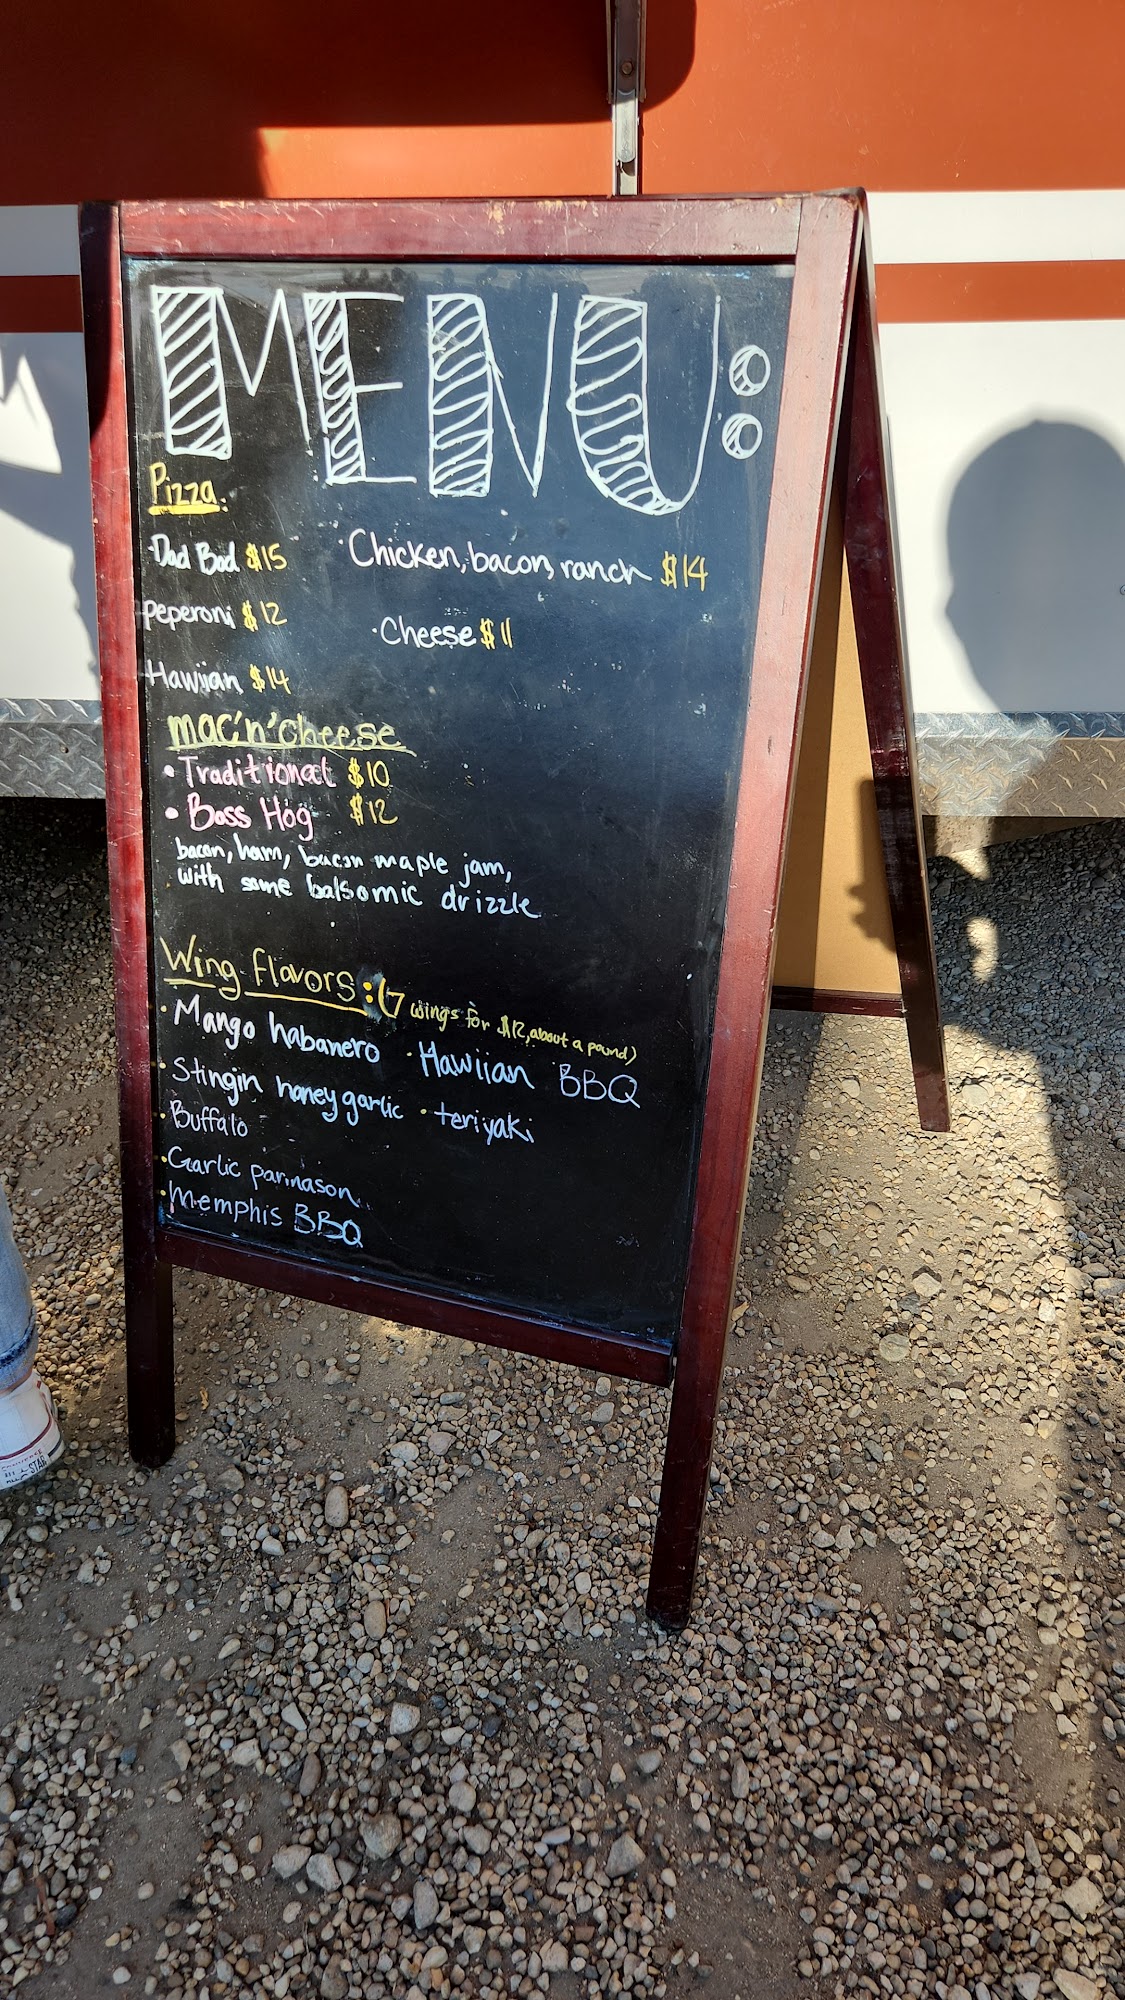 MENU:
Pizza:
·Dad Bod $15
·Chicken, bacon, ranch $14
peperoni $12
·Cheese $11
Hawiian $14
mac'n'cheese
• Traditional $10
• Boss Hog $12
bacon, ham, bacon maple jam,
with some balsomic drizzle
Wing flavors: (7 wings for $12, about a pound)
·Mango habanero
·Hawiian BBQ
·Stingin honey garlic
·teriyaki
·Buffalo
·Garlic parmason
·Memphis BBQ